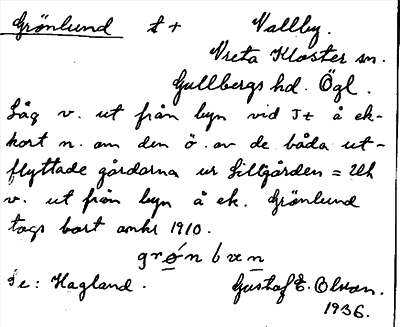 Grönlund t + Vallby.
Vreta Kloster sn.
Gullbergs hd. Ögl.
Låg v. ut från byn vid J+ å ek-
kort n. om den ö. av de båda ut-
flyttade gårdarna ur Lillgården = Uh
v. ut från byn å ek. Grönlund
togs bort omkr 1910.
Se: Hagland. Gustaf E. Olsson.
1936.